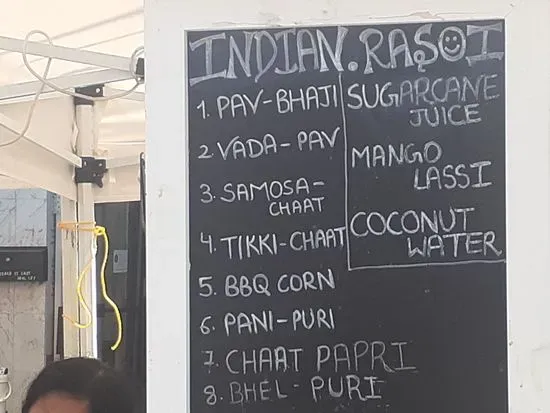 INDIAN.RASOI
1. PAV-BHAJI
2 VADA-PAV
3. SAMOSA-
CHAAT
4. TIKKI-CHAAT
5. BBQ CORN
6. PANI-PURI
7. CHAAT PAPRI
8. BHEL-PURI
SUGARCANE
JUICE
MANGO
LASSI
COCONUT
WATER